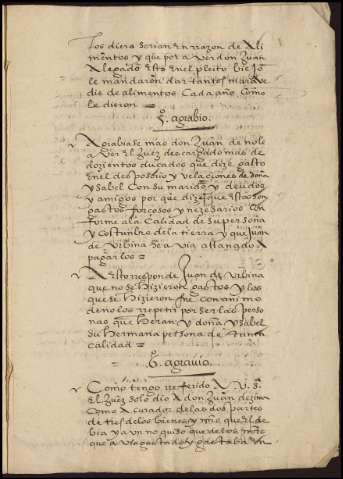 los diera serian en razon de ali
mentos y que por aver don Juan
alegado esto en el pleito
le mandaron dar tantos marave
dis de alimentos cada año como
le dieron
5. agrabio.
Agrabiase mas don Juan de no le
aver el Juez descargado mas de
dozientos ducados que dize gasto
en el desposorio y velaciones de doña
ysabel con su marido y deudos
y amigos por que dize que estos son
gastos forçosos y nezesarios con
forme a la calidad de su persona
y costunbre de la tierra y que Juan
de Urbina se avia allanado a
pagarlos
A esto responde Juan de Urbina
que no se hizieron gastos y los
que se hizieron fue con animo
de no los repetir por ser las perso
nas que heran y doña ysabel
su hermana persona de tanta
calidad
6. agravio.
Como tengo referido a V. S.
el Juez solo dio a don Juan dezima
como a curador de las dos partes
de tres de los bienes y
que a via gastado y gastaba en